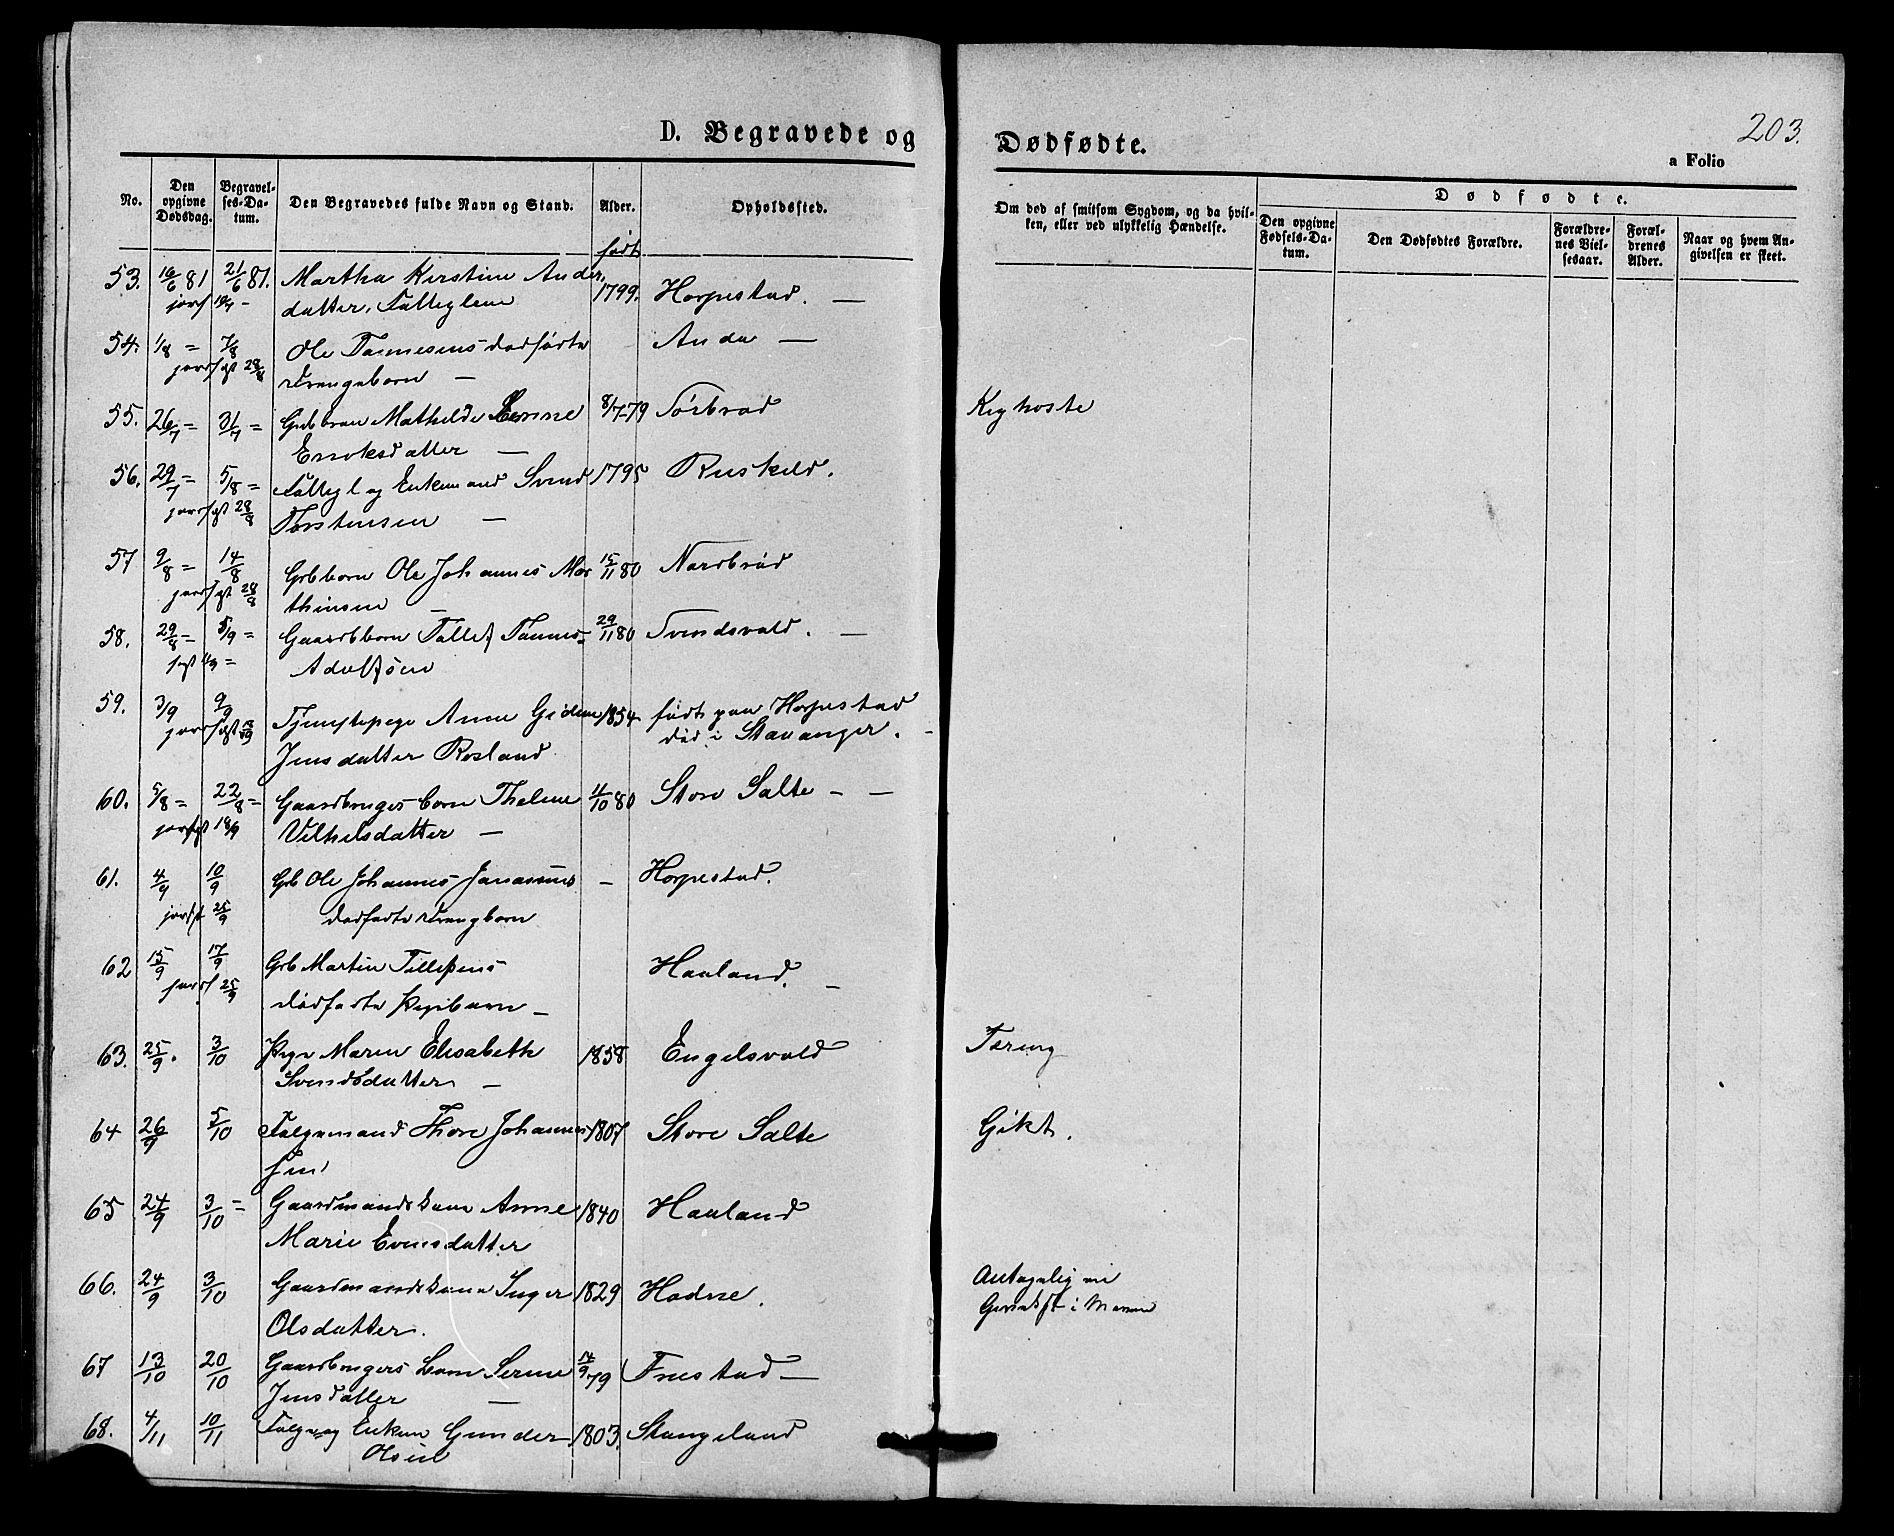 D. Begravede og Dødfødte.
203.
a Folio
No.
Den opgivne Dødsdag.
Begravelses-Datum.
Den Begravedes fulde Navn og Stand.
Alder.
Opholdssted.
Om død af smitsom Sygdom, og da hvilken, eller ved ulykkelig Hændelse.
Dødfødte.
Den opgivne Fødsels-Datum.
Den Dødfødtes Forældre.
Forældrenes Vielsesaar.
Forældrenes Alder.
Naar og hvem Angivelsen er skeet.
født
53. 16/6 81 21/6 81. Martha Kirstine Anders 1799. Horpestad. —
datter,
54. 1/8 = 7/8 Ole Tønnesens dødfødte Anda —
jordfgt 28/8 Drengebarn —
55. 26/7 = 31/7 = Grbbrn Mathilde Serine 8/7-79 Sørbrød Kighoste
Enoksdatter —
56. 29/7 = 5/8 = Fattigl og Enkemand Svend 1795 Ruskeld.
jordfgt 28/8 Torstensen —
57 9/8 = 14/8 Grbbarn Ole Johannes Mar 15/11 80 Nordbrød
jordfgt 28/8 thinsen —
58. 29/8 = 5/9 = Gaardbbarn Tollef Tønnes 29/11 80 Svendsvold. —
Adolfsen
59. 3/9 9/9 Tjenestepige Anne Gidine 1854 født paa Horpestad
jordfgt Jensdatter Rosland død i Stavanger. -
60. 5/8 = 22/8 = Gaardbrugers barn Theline 4/10 80 Store Salte — —
jordfgt 18/9 Vilhelsdatter —
61. 4/9 10/9 Grb Ole Johannes Jonassens — Horpestad.
jordfgt 25/9 dødfødte Drengbarn
62 15/9 17/9 Grb Martin Tillefsens Haaland. —
jordf 25/9 dødfødte Pigebarn —
63. 25/9. 3/10 Pige Maren Elisabeth 1858 Engelsvold Tæring
Svendsdatter —
64 26/9 5/10 Følgemand Thore Johannes 1807 Store Salte Gikt.
sen
65 24/9 3/10 = Gaardmandskone Anne 1840 Haaland
Marie Evensdatter
66. 24/9 3/10 Gaardmandskone Inger 1829 Hodne. Antagelig en
Olsdatter. i Maven
67 13/10 20/10 Gaardbrugers barn Serine 14/9 79 Fuestad —
Jensdatter —
68. 4/11 10/11 Følge og Enkem Gunder 1803. Stangeland
Olsen